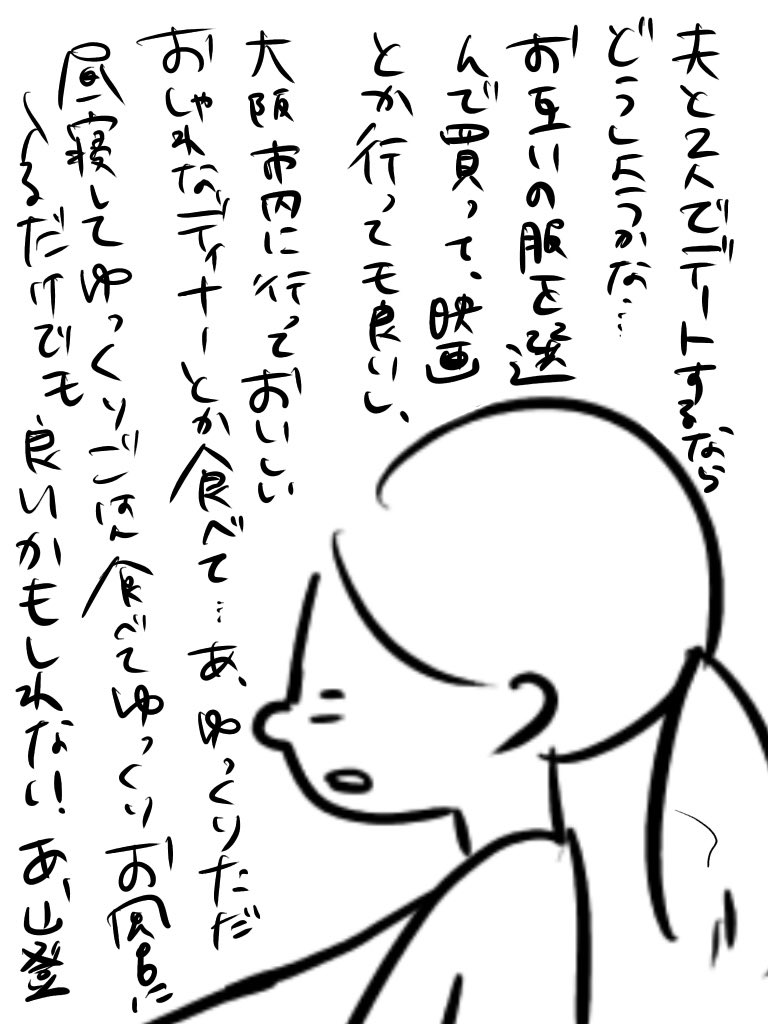 夫と2人でデートするなら
どうしようかな…
お互いの服を選
んで買って、映画
とか行っても良いし、
大阪市内に行っておいしい
おしゃれなディナーとか食べて…あ、ゆっくりただ
昼寝してゆっくりごはん食べてゆっくりお風呂に
入るだけでも良いかもしれない!あ、山登